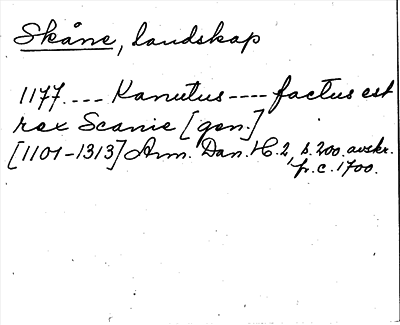 Skåne, landskap
1177.... Kanutus ---- factus est
rex Scanie [gen.]
[1101-1313] Ann. Dan. H. 2, s. 200. avskr.
fr. c. 1700.